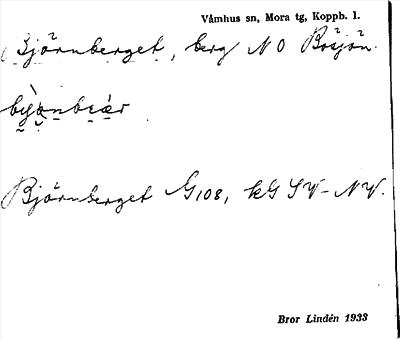 Våmhus sn, Mora tg, Koppb. l.
Björnberget, berg N O Bösjön.
Björnberget G108, kG SV-NV.
Bror Lindén 1933